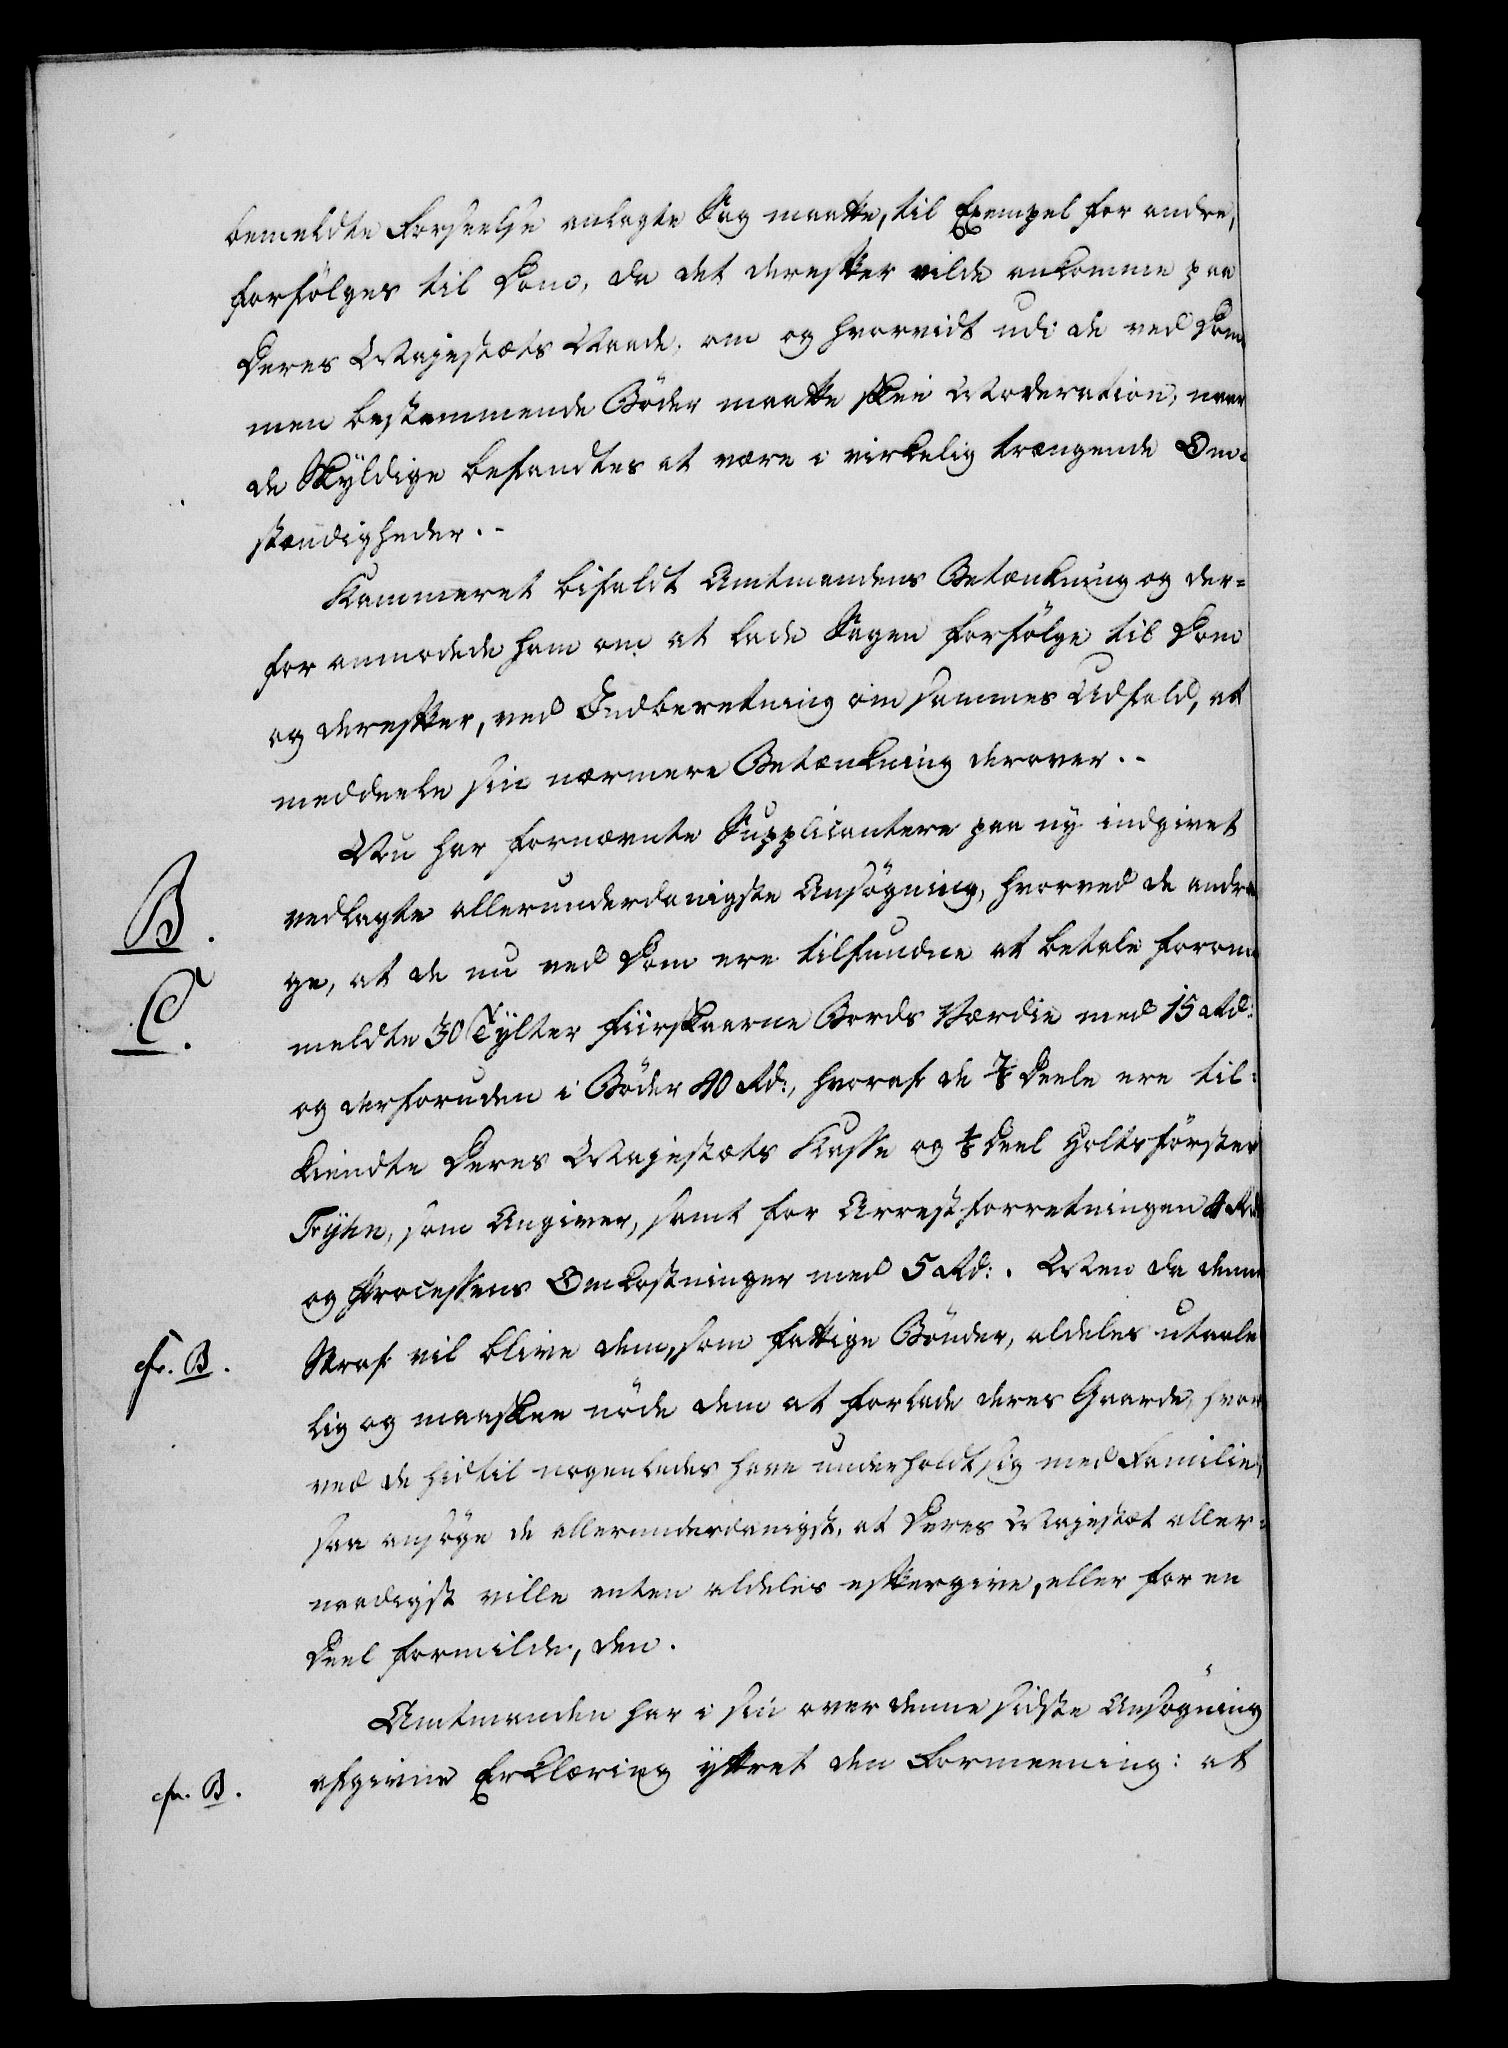 bemeldte Forseelse anlagte Sag maatte, til Exempel for andre,
forfölges til Dom, da det derefter vilde ankomme paa
Deres Majestæts Naade, om og hvorvidt udi de ved Dom
men bestemmende Böder maatte skee Moderation, naar
de Skyldige befandtes at være i virkelig trængende Om-
stændigheder. -
Kammeret bifaldt Amtmandens Betænkning og der-
for anmodede ham om at lade Sagen forfölge til Dom
og derefter, ved Indberetning om sammes Udfald, at
meddeele sin nærmere Betænkning derover. -
Nu har fornævnte Supplicantere paa ny indgivet
B.
vedlagte allerunderdanigste Ansögning, hvorved de andra
ge, at de nu ved Dom ere tilfundne at betale forom
C.
meldte 30 Tylter fiirskaarne Bords Værdie med 15 Rd:
og derforuden i Böder 40 Rd:, hvoraf de 2/3 Deele ere til-
kiendte Deres Majestæts Kasse og 1/3 Deel Holtsförster
Tryhn, som Angiver, samt for Arrestforretningen 4 Rd
og Processens Omkostninger med 5 Rd:. Men da denne
cfr. B.
Straf vil blive dem, som fattige Bönder, aldeles utaale
lig og maaskee nöde dem at forlade deres Gaarde, hvor
ved de hidtil nogenledes have underholdt sig med Familie,
saa ansöge de allerunderdanigst, at Deres Majestæt aller-
naadigst ville enten aldeles eftergive, eller for en
Deel formilde, den.
Amtmanden har i sin over denne sidste Ansögning
cfr. B.
afgivne Erklæring yttret den Formeening: at